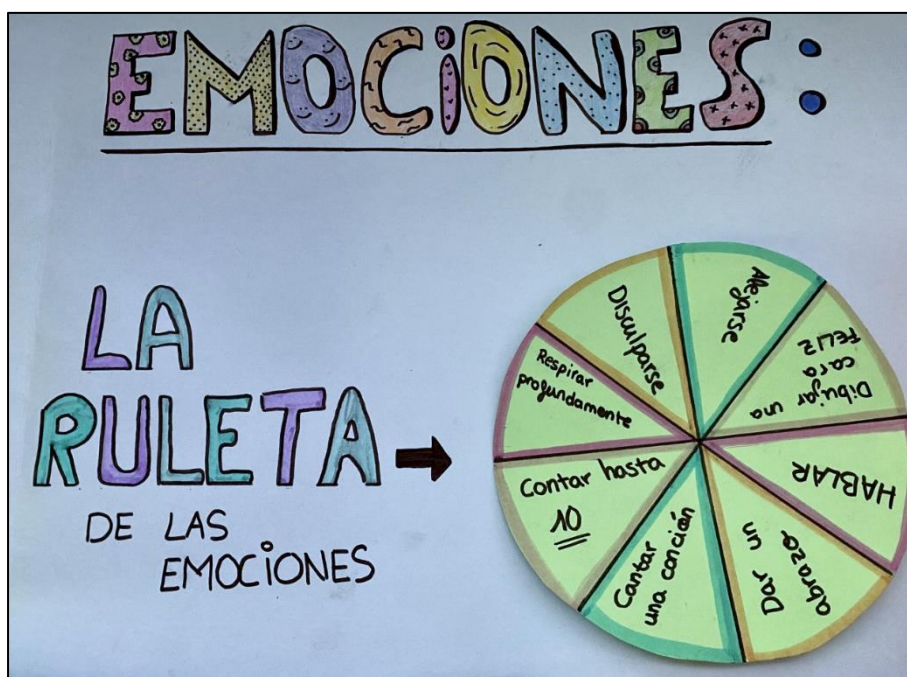 EMOCiONES:
LA
RULETA
DE LAS
EMOCiONES
Alejarse
Dibujar una
cara
FELIZ
HABLAR
Dar un
abrazo
Cantar
una conción
Contar hasta
10
Respirar
profundamente
Disculparse